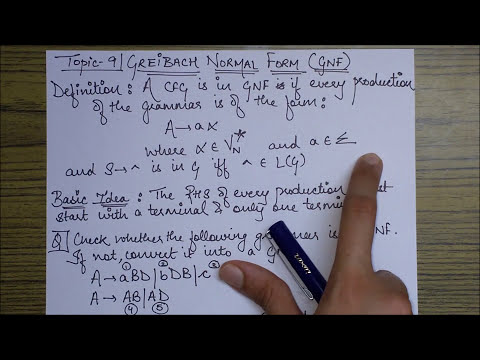 Topic-9| GREIBACH NORMAL FORM (GNF)
Definition: A CFG is in GNF is if every production
of the grammar is of the form:
A→aα
where α ∈ V_N^* and a ∈ Σ
and S→^ is in G iff ^ ∈ L(G)
Basic Idea: The RHS of every production
start with a terminal & only one
Q| Check whether the following
If not, convert it into a
A→aBD|bDB|c
① ② ③
A→AB|AD
④ ⑤